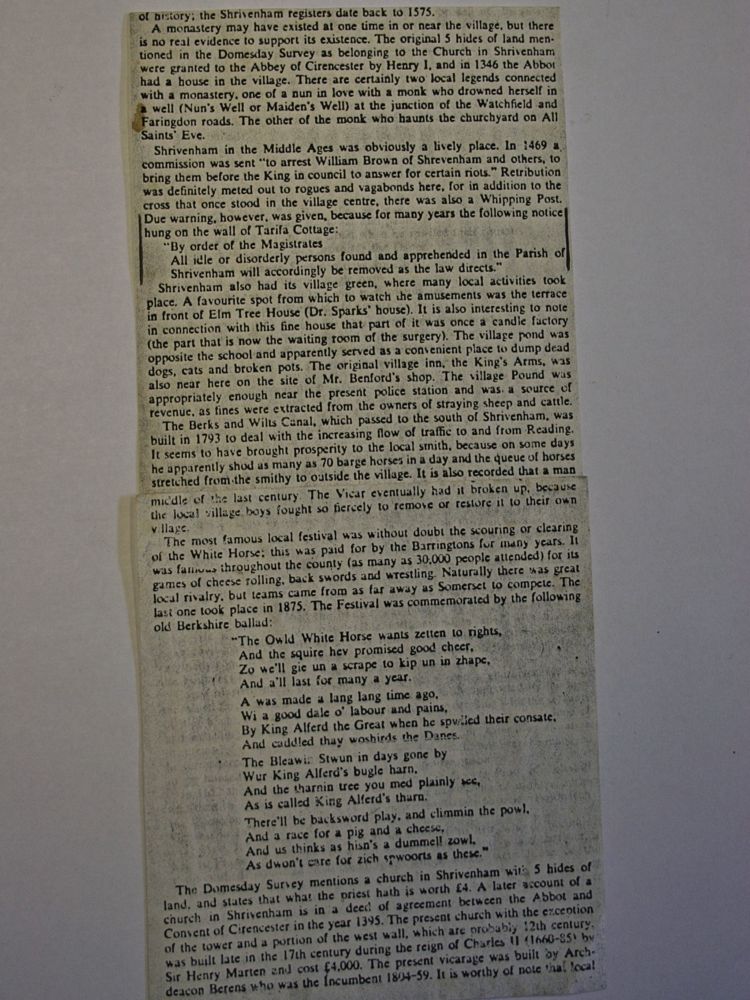 of history; the Shrivenham registers date back to 1575.
A monastery may have existed at one time in or near the village, but there
is no real evidence to support its existence. The original 5 hides of land men-
tioned in the Domesday Survey as belonging to the Church in Shrivenham
were granted to the Abbey of Cirencester by Henry I, and in 1346 the Abbot
had a house in the village. There are certainly two local legends connected
with a monastery, one of a nun in love with a monk who drowned herself in
a well (Nun's Well or Maiden's Well) at the junction of the Watchfield and
Faringdon roads. The other of the monk who haunts the churchyard on All
Saints' Eve.
Shrivenham in the Middle Ages was obviously a lively place. In 1469 a
commission was sent "to arrest William Brown of Shrevenham and others, to
bring them before the King in council to answer for certain riots." Retribution
was definitely meted out to rogues and vagabonds here, for in addition to the
cross that once stood in the village centre, there was also a Whipping Post.
Due warning, however, was given, because for many years the following notice
hung on the wall of Tarifa Cottage:
"By order of the Magistrates
All idle or disorderly persons found and apprehended in the Parish of
Shrivenham will accordingly be removed as the law directs."
Shrivenham also had its village green, where many local activities took
place. A favourite spot from which to watch the amusements was the terrace
in front of Elm Tree House (Dr. Sparks' house). It is also interesting to note
in connection with this fine house that part of it was once a candle factory
(the part that is now the waiting room of the surgery). The village pond was
opposite the school and apparently served as a convenient place to dump dead
dogs, cats and broken pots. The original village inn, the King's Arms, was
also near here on the site of Mr. Benford's shop. The village Pound was
appropriately enough near the present police station and was a source of
revenue, as fines were extracted from the owners of straying sheep and cattle.
The Berks and Wilts Canal, which passed to the south of Shrivenham, was
built in 1793 to deal with the increasing flow of traffic to and from Reading.
It seems to have brought prosperity to the local smith, because on some days
he apparently shod as many as 70 barge horses in a day and the queue of horses
stretched from the smithy to outside the village. It is also recorded that a man
middle of the last century. The Vicar eventually had it broken up, because
the local village boys fought so fiercely to remove or restore it to their own
village.
The most famous local festival was without doubt the scouring or clearing
of the White Horse; this was paid for by the Barringtons for many years. It
was famous throughout the county (as many as 30,000 people attended) for its
games of cheese rolling, back swords and wrestling. Naturally there was great
local rivalry, but teams came from as far away as Somerset to compete. The
last one took place in 1875. The Festival was commemorated by the following
old Berkshire ballad:
"The Owld White Horse wants zetten to rights,
And the squire hev promised good cheer,
Zo we'll gie un a scrape to kip un in zhape,
And a'll last for many a year.
A was made a lang lang time ago,
Wi a good dale o' labour and pains,
By King Alferd the Great when he spwiled their consate,
And caddled thay wosbirds the Danes.
The Bleawin Stwun in days gone by
Wur King Alferd's bugle harn,
And the tharnin tree you med plainly see,
As is called King Alferd's tharn.
There'll be backsword play, and climmin the powl,
And a race for a pig and a cheese,
And us thinks as hisn's a dummell zowl,
As dwon't care for zich spwoorts as these."
The Domesday Survey mentions a church in Shrivenham with 5 hides of
land, and states that what the priest hath is worth £4. A later account of a
church in Shrivenham is in a deed of agreement between the Abbot and
Convent of Cirencester in the year 1395. The present church with the exception
of the tower and a portion of the west wall, which are probably 12th century,
was built late in the 17th century during the reign of Charles II (1660-85) by
Sir Henry Marten and cost £4,000. The present vicarage was built by Arch-
deacon Berens who was the Incumbent 1804-59. It is worthy of note that local